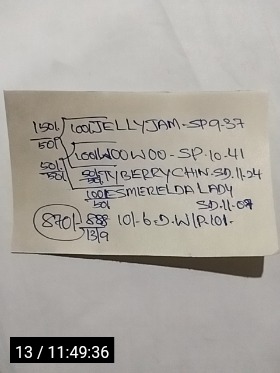 150/- 100/JELLYJAM-SP9-37
50/-
100/WOOWOO-SP.10.41
50/- 50/TYBERRYCHIN.SD.11-24
50/-
100/ESMERIELDA LADY
50/- SD.11-07
870/- 888 10/-6=D.W/P.101-
13/9
13 / 11:49:36